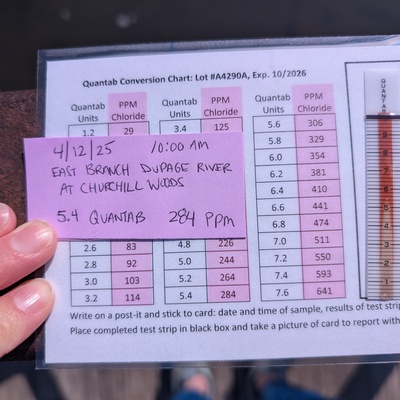 Quantab Conversion Chart: Lot #A4290A, Exp. 10/2026
Quantab Units PPM Chloride
1.2 29
2.6 83
2.8 92
3.0 103
3.2 114
Quantab Units PPM Chloride
3.4 125
4.8 226
5.0 244
5.2 264
5.4 284
Quantab Units PPM Chloride
5.6 306
5.8 329
6.0 354
6.2 381
6.4 410
6.6 441
6.8 474
7.0 511
7.2 550
7.4 593
7.6 641
4/12/25 10:00 AM
EAST BRANCH DUPAGE RIVER
AT CHURCHILL WOODS
5.4 QUANTAB 284 PPM
Write on a post-it and stick to card: date and time of sample, results of test strip
Place completed test strip in black box and take a picture of card to report with
QUANTAB